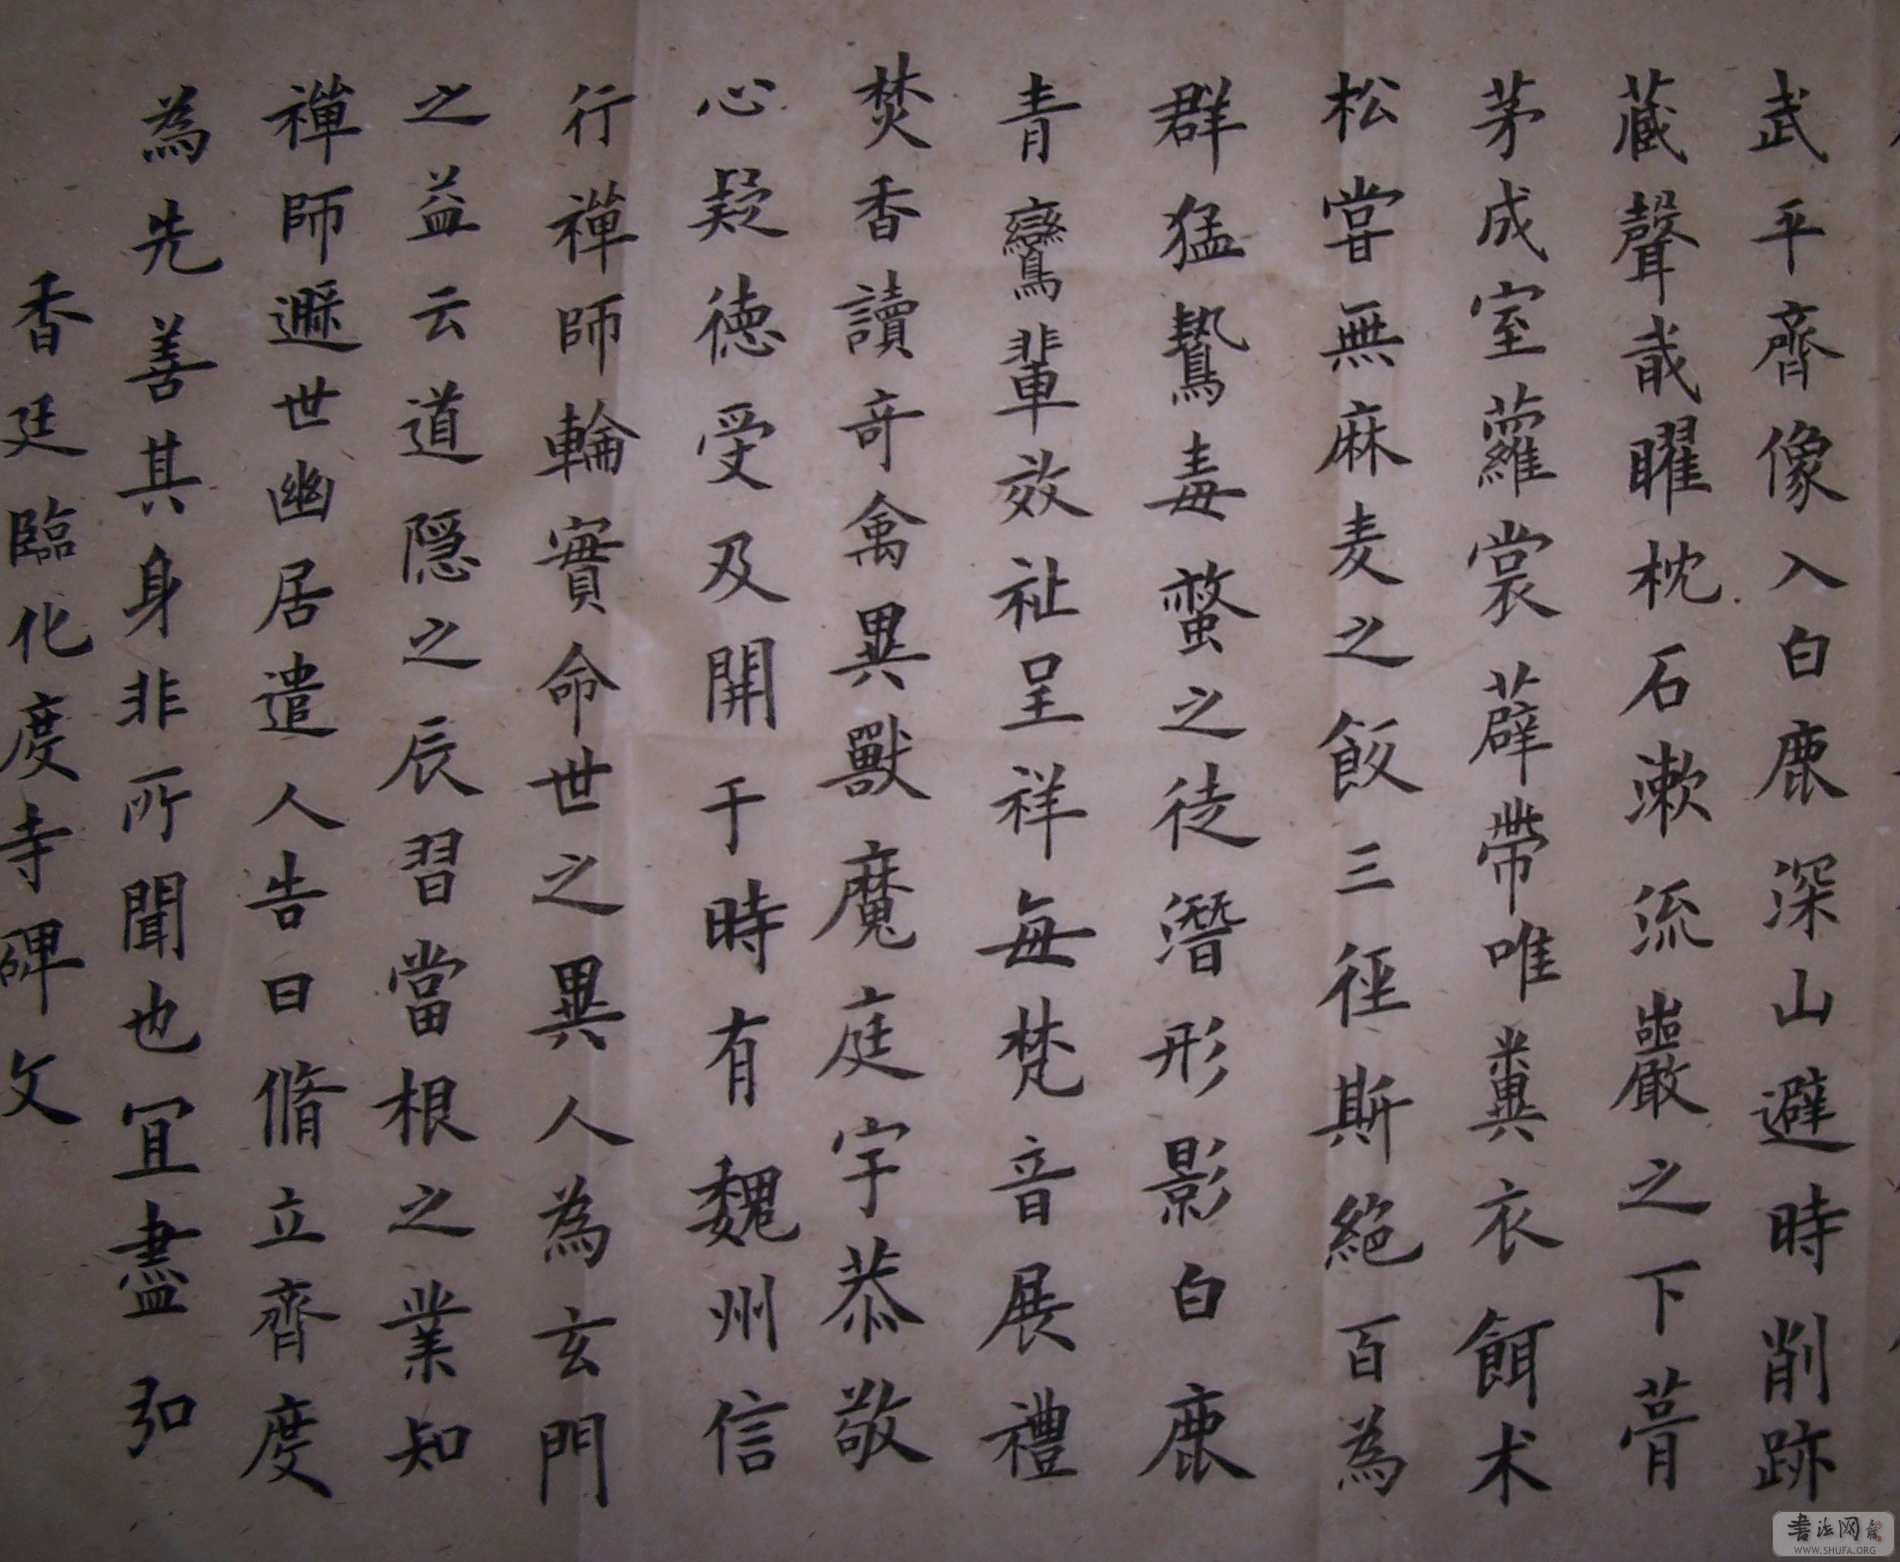 武平齊像入白鹿深山避時削跡
藏聲戢曜枕石漱流巖之下葺
茅成室蘿裳薜帶唯糞衣餌术
松嘗無麻麦之飯三徑斯絕百為
群猛鷙毒螫之徒潛形影白鹿
青鸞輩效祉呈祥每梵音展禮
焚香讀奇禽異獸魔庭宇恭敬
心疑德受及開于時有魏州信
行禪師輪實命世之異人為玄門
之益云道隱之辰習當根之業知
禪師遯世幽居遣人告曰脩立齊度
為先善其身非所聞也宜盡弘
香廷臨化度寺碑文
書法网
WWW.SHUFA.ORG